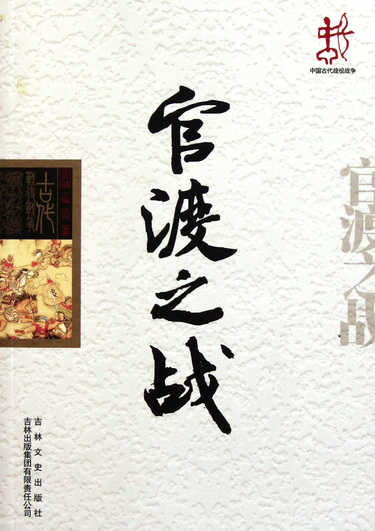 中国古代战役战争
官渡之战
官渡之战
古代
吉林文史出版社
吉林出版集团有限责任公司